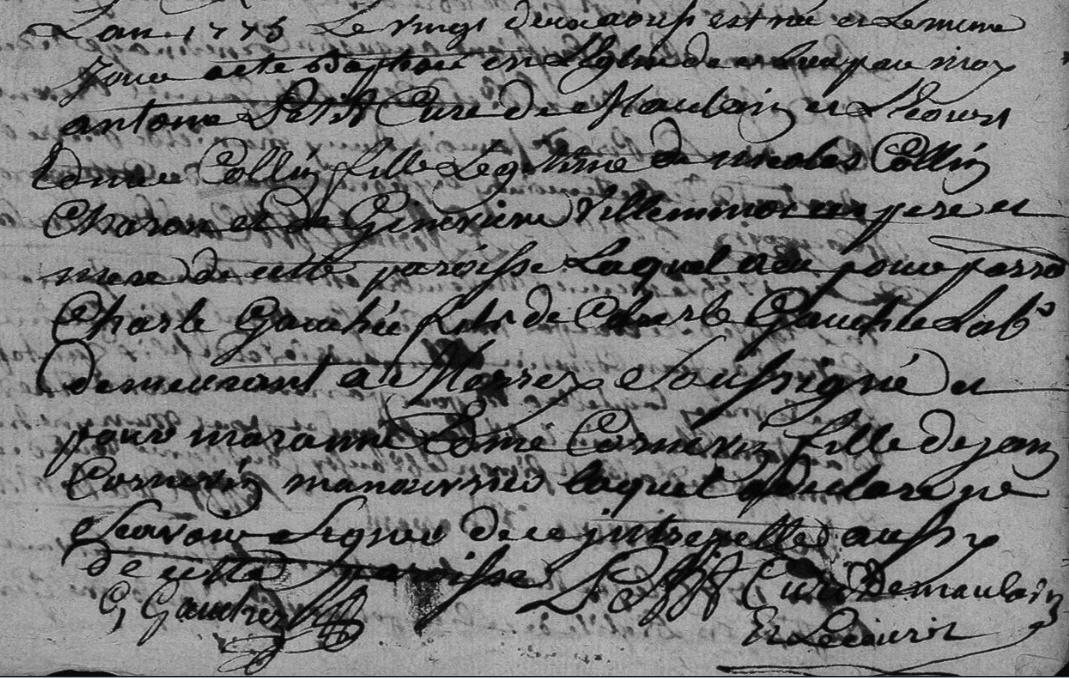 Lan 1775 Le vingt deux aoust est né et Le meme
jour a este Baptisée en Léglise de par moy
antoine Petit Curé de Maulain et Lécourt
Edmée Collin fille Légitime de nicolas Collin
Charon et de Genevieve Villemmot ses pere et
mere de cette paroisse Laquel a eu pour parra
Charle Gauthié fils de Charle Gauthie Labr
demeurant a soussigné et
pour maranne Edmé Cornevin fille de jean
Cornevin manouvrier laquel a declaré ne
scavoir signer de ce intrepellé aussy
de cette paroisse Petit Curé de maulain
C, Gautier Et Lecourt